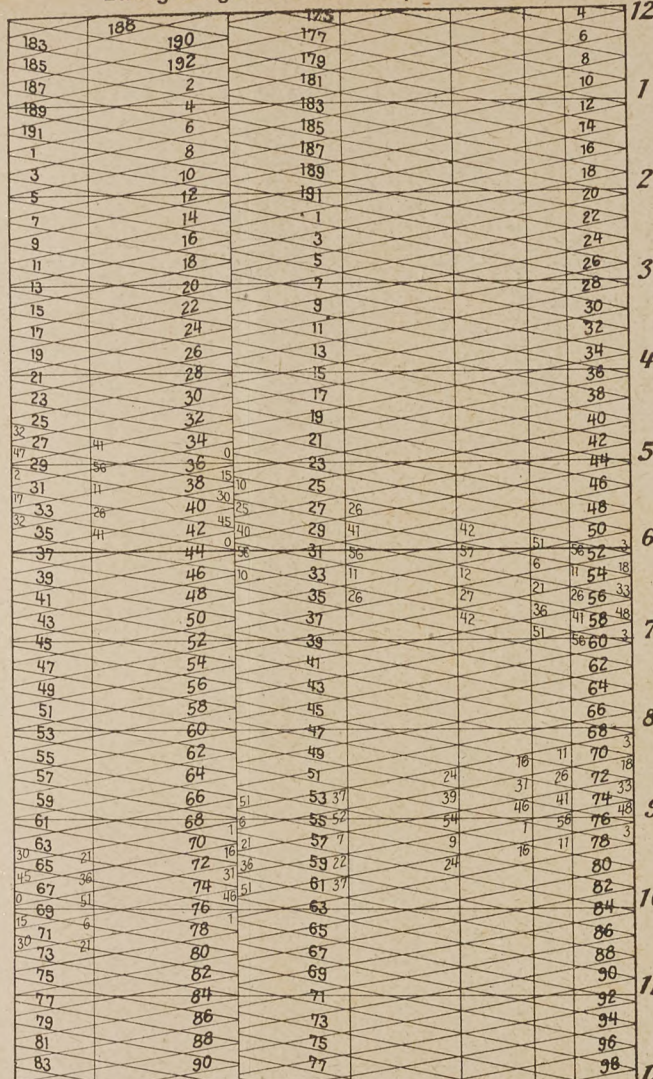 175 4 12
188
183 190 177 6
185 192 179 8
187 2 181 10 1
189 4 183 12
191 6 185 14
1 8 187 16
3 10 189 18 2
5 12 191 20
7 14 1 22
9 16 3 24
11 18 5 26 3
13 20 7 28
15 22 9 30
17 24 11 32
19 26 13 34 4
21 28 15 36
23 30 17 38
25 32 19 40
32
27 41 34 21 42 5
47 0
29 56 36 23 44
2 15
31 11 38 10 25 46
17 30
33 26 40 25 27 26 48
32 45
35 41 42 40 29 41 42 50 6
0 51 3
37 44 56 31 56 57 56 52
6 18
39 46 10 33 11 12 11 54
21 33
41 48 35 26 27 26 56
36 48
43 50 37 42 41 58 7
51 3
45 52 39 56 60
47 54 41 62
49 56 43 64
51 58 45 66 8
53 60 47 68
3
55 62 49 16 11 70
18
57 64 51 24 31 26 72
33
59 66 51 53 37 39 46 41 74 9
48
61 68 6 55 52 54 1 56 76
1 3
63 70 21 57 7 9 16 11 78
30 21 16
65 72 36 59 22 24 80
45 36 31
67 74 51 61 37 82
0 51 46
69 76 63 84
15 6 1
71 78 65 86
30 21
73 80 67 88
75 82 69 90
77 84 71 92
79 86 73 94
81 88 75 96
83 90 77 98